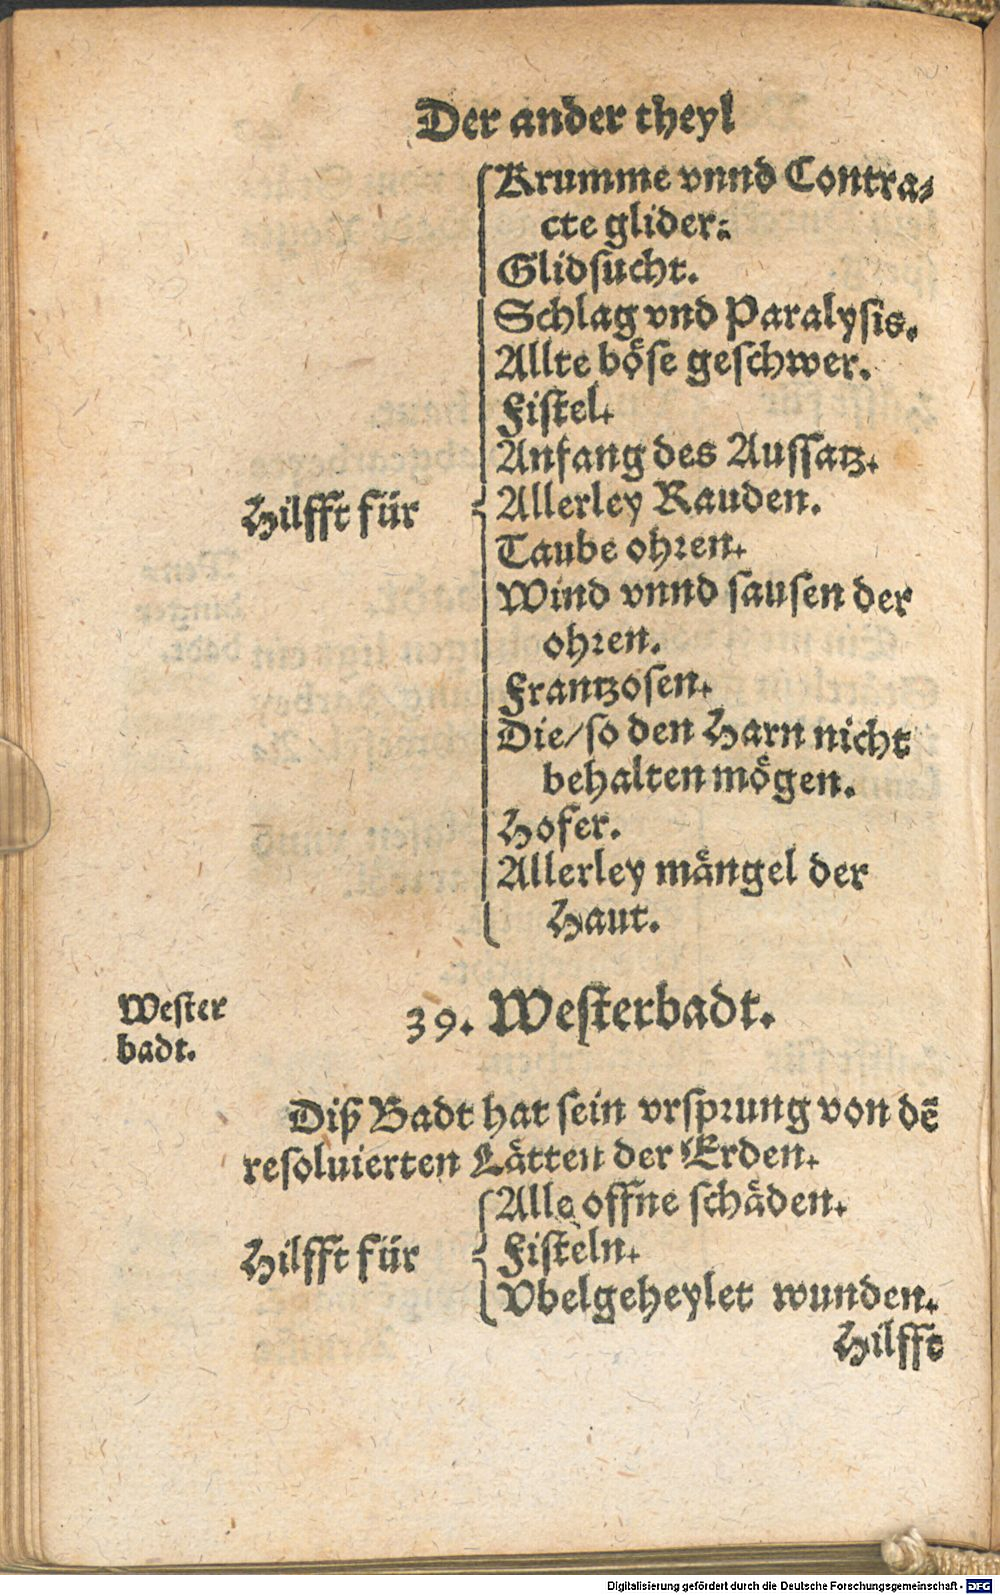 Der ander theyl
Krumme vnnd Contra⸗
cte glider⸗
Glidsucht.
Schlag vnd Paralysis.
Allte boͤse geschwer.
Fistel.
Anfang des Aussatz.
Hilfft für
Allerley Rauden.
Taube ohren.
Wind vnnd sausen der
ohren.
Frantzosen.
Die/so den Harn nicht
behalten moͤgen.
Hofer.
Allerley maͤngel der
Haut.
Wester
badt.
39. Westerbadt.
Diß Badt hat sein vrsprung von dē
resoluierten Laͤtten der Erden.
Alle offne schaͤden.
Hilfft für
Fisteln.
Vbelgeheylet wunden.
Hilfft
Digitalisierung gefördert durch die Deutsche Forschungsgemeinschaft - DFG